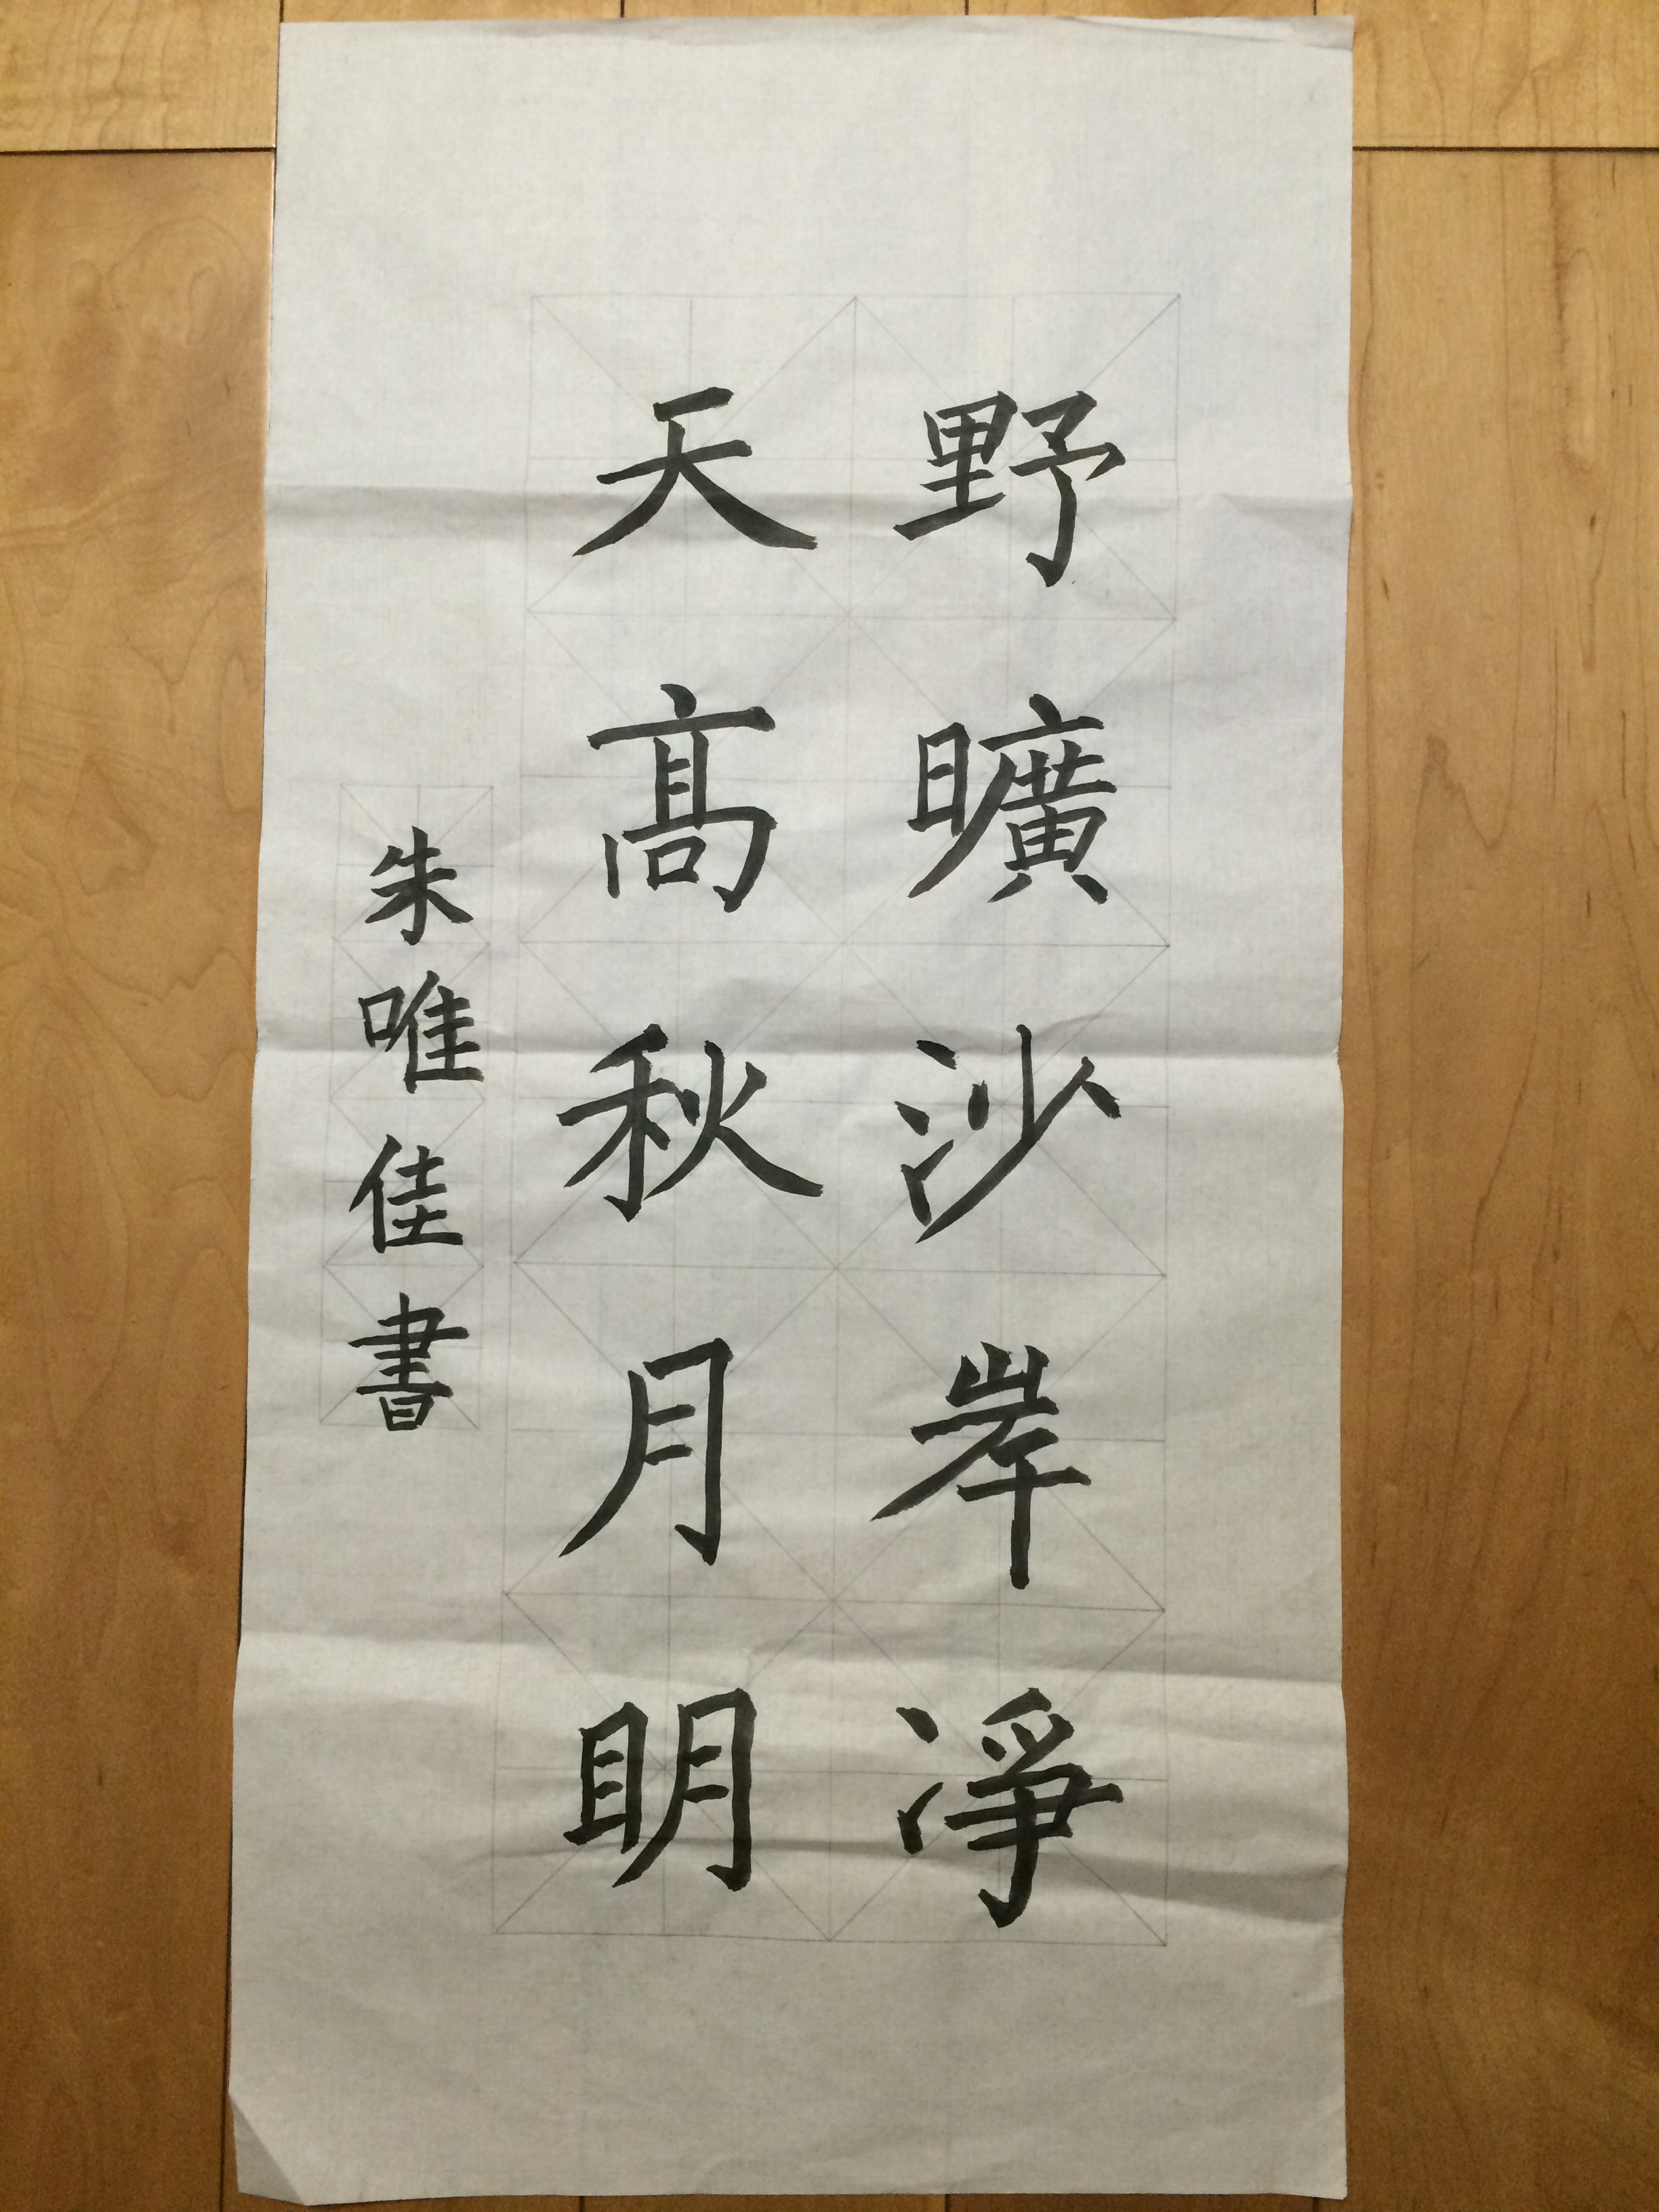 野曠沙岸淨
天高秋月明
朱唯佳書